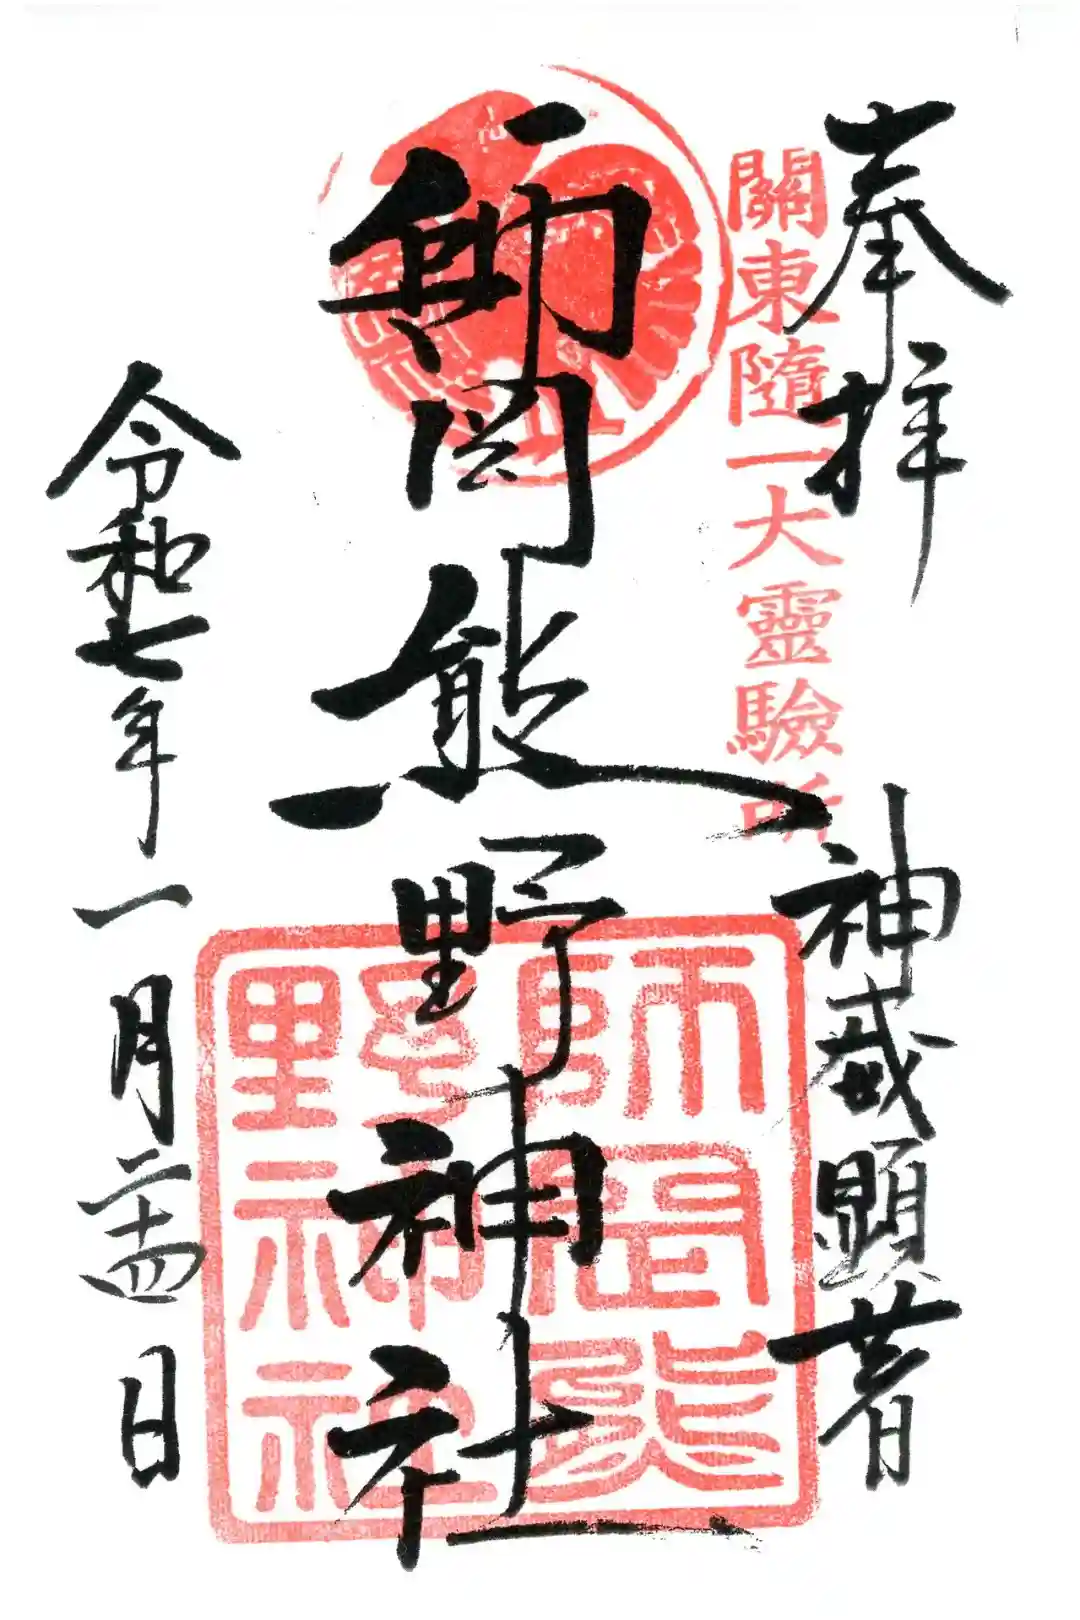 奉拝
神威顕著
關東隨一大靈驗所
師岡熊野神社
師岡熊
野神社
令和七年一月二十四日